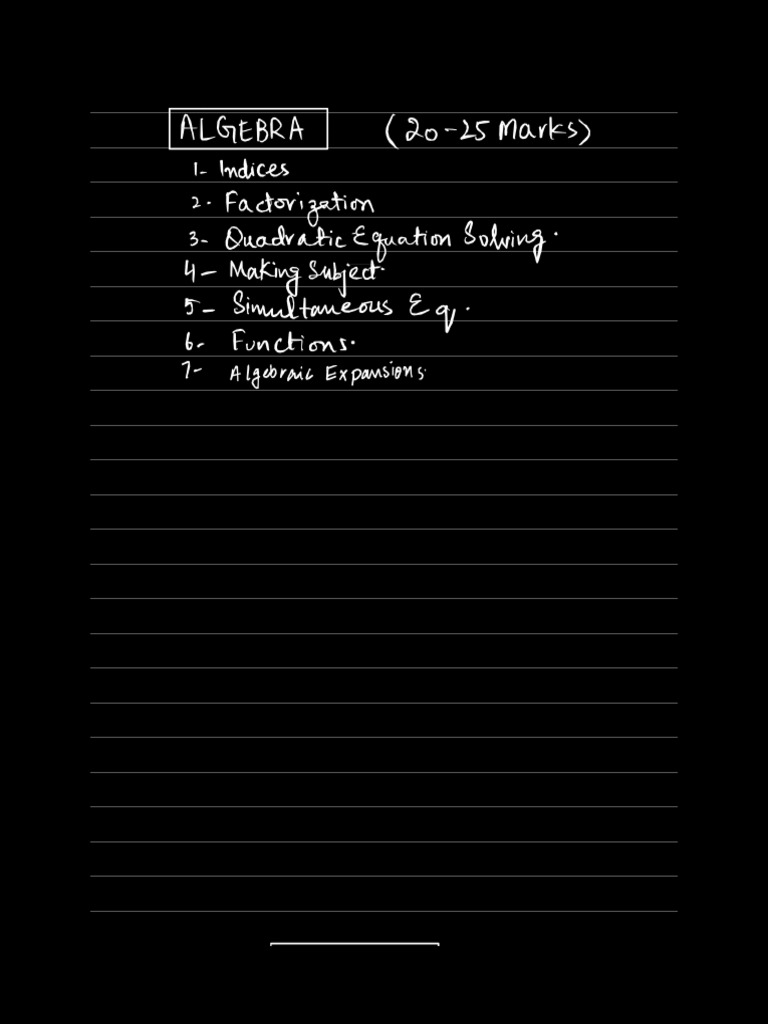 ALGEBRA (20-25 Marks)
1- Indices
2. Factorization
3- Quadratic Equation Solving.
4- Making Subject.
5- Simultaneous Eq.
6- Functions.
7- Algebraic Expansions.